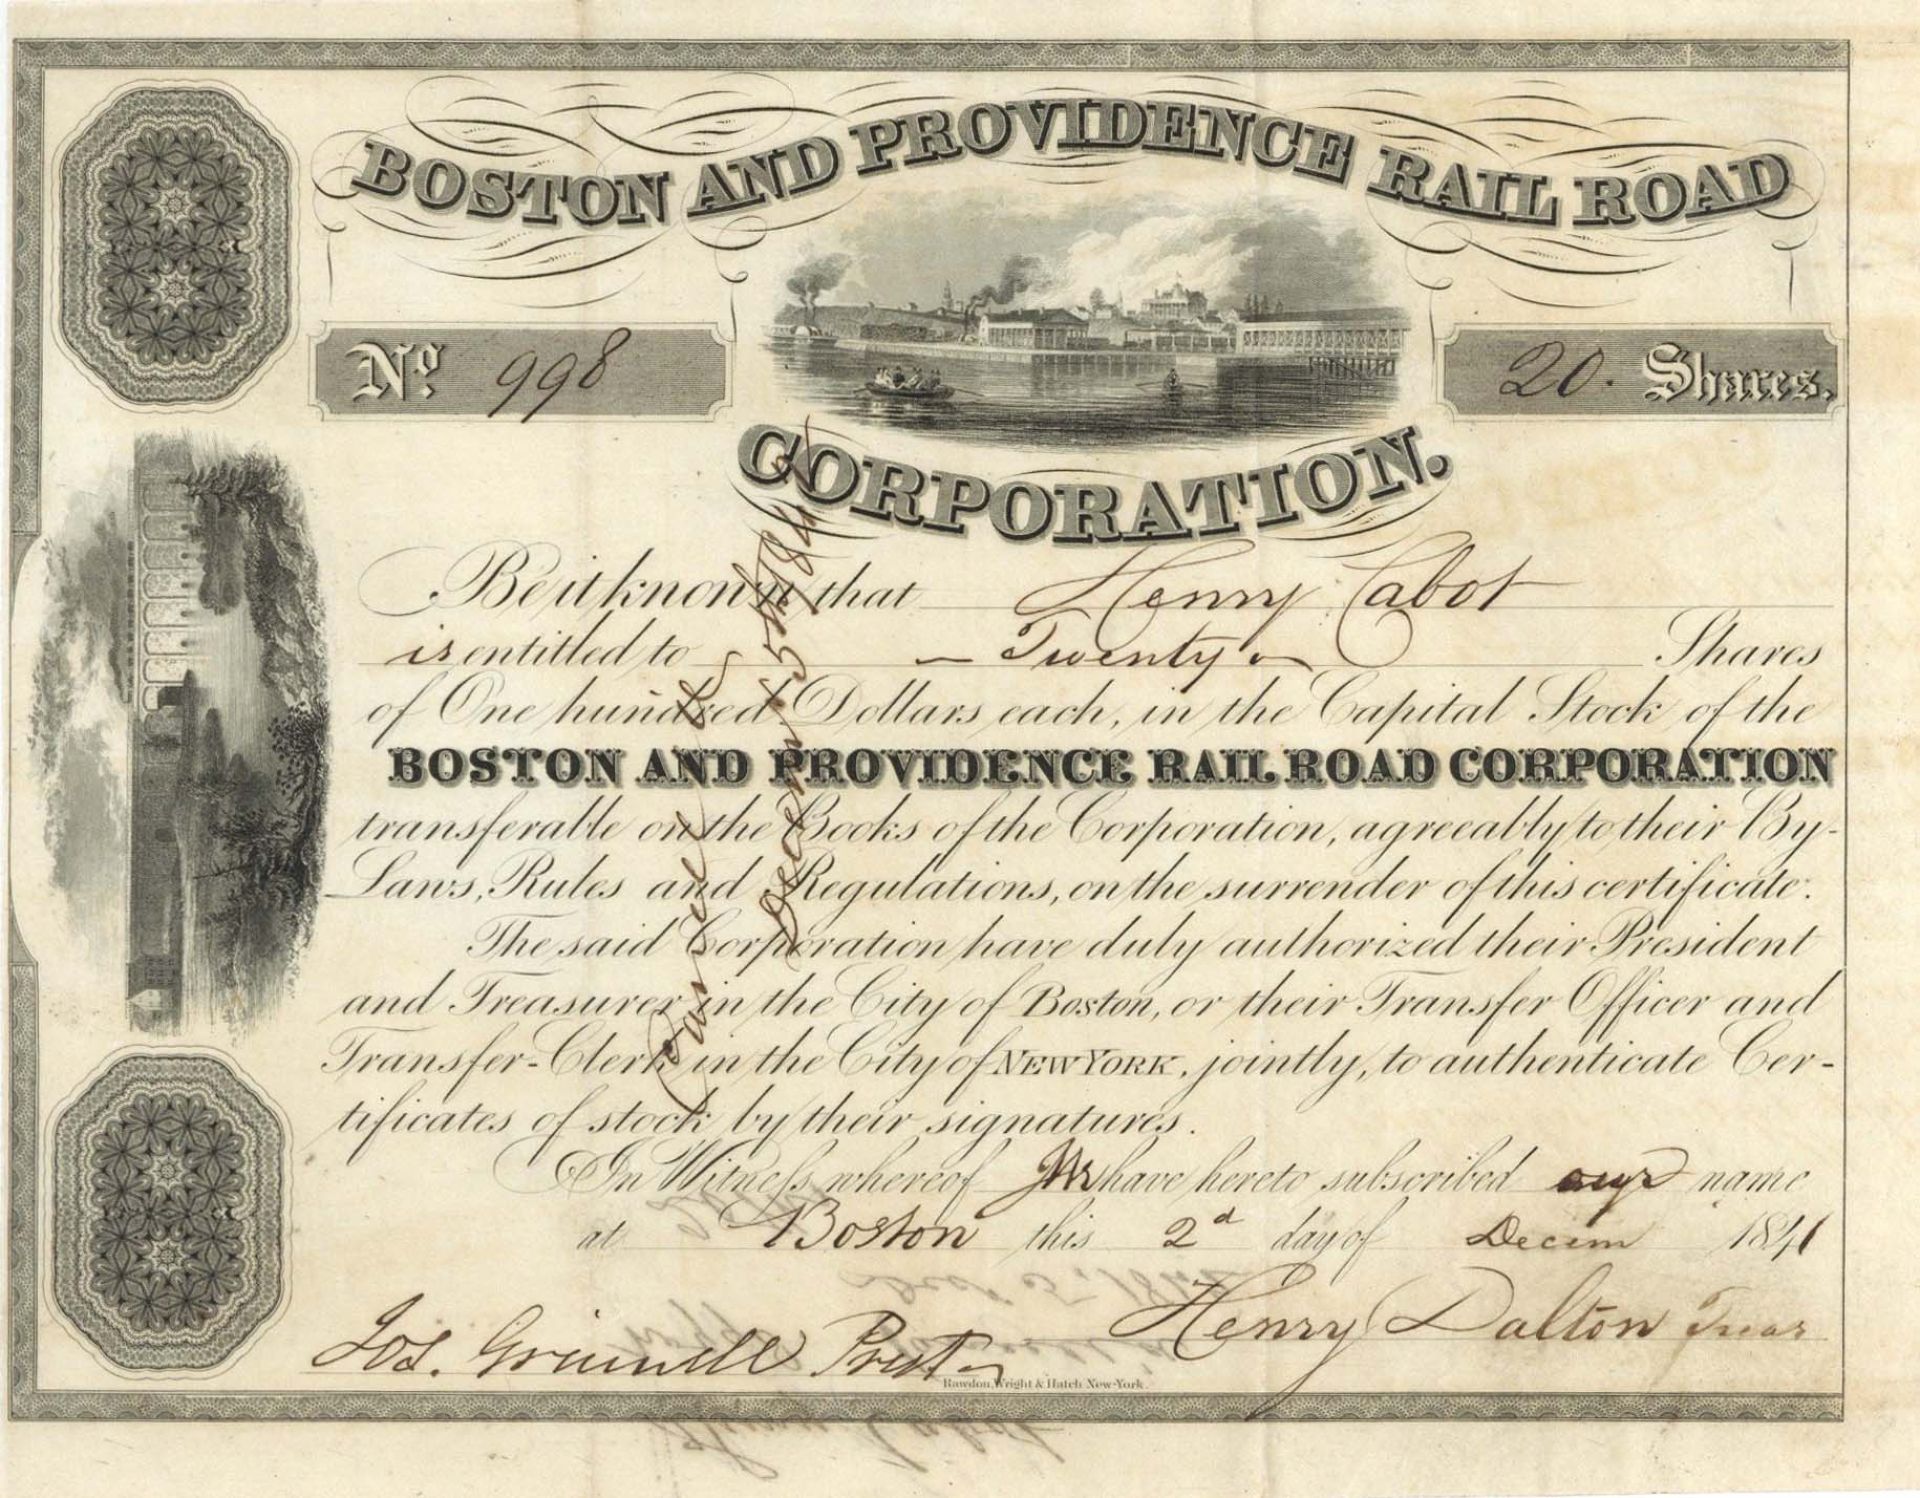 BOSTON AND PROVIDENCE RAIL ROAD
CORPORATION.
No. 998
20. Shares.
Be it known that Henry Cabot
is entitled to - Twenty - Shares
of One hundred Dollars each, in the Capital Stock of the
BOSTON AND PROVIDENCE RAIL ROAD CORPORATION
transferable on the Books of the Corporation, agreeably to their By-
Laws, Rules and Regulations, on the surrender of this certificate.
The said Corporation have duly authorized their President
and Treasurer in the City of Boston, or their Transfer Officer and
Transfer-Clerk in the City of NEW YORK, jointly, to authenticate Cer-
tificates of stock by their signatures.
In Witness whereof We have hereto subscribed our name
at Boston this 2d day of Decem 1841
Jos. Grinnell Prest
Henry Dalton Treas
Rawdon, Wright & Hatch New-York.
Cancelled
December 5th 184